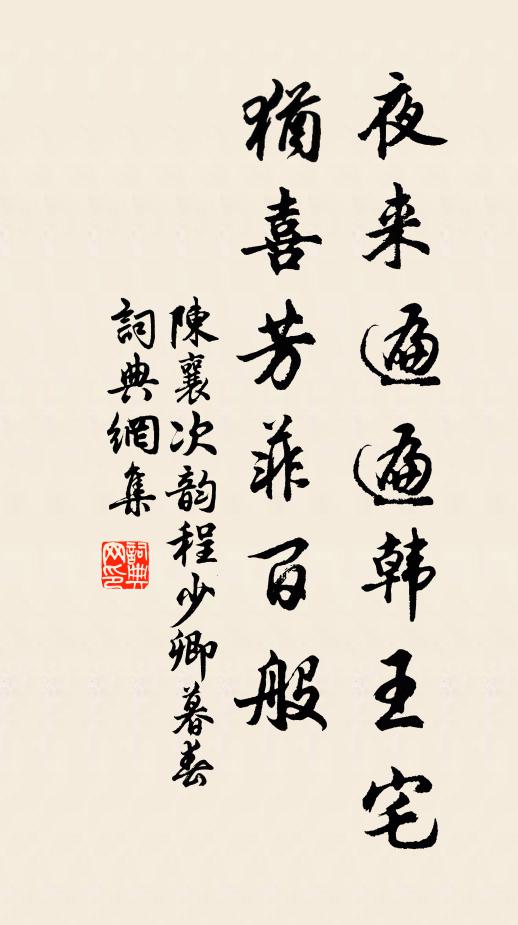 夜来遍遍韩王宅
犹喜芳菲百般
陳襄次韵程少卿暮春
詞典網集
詞典网印